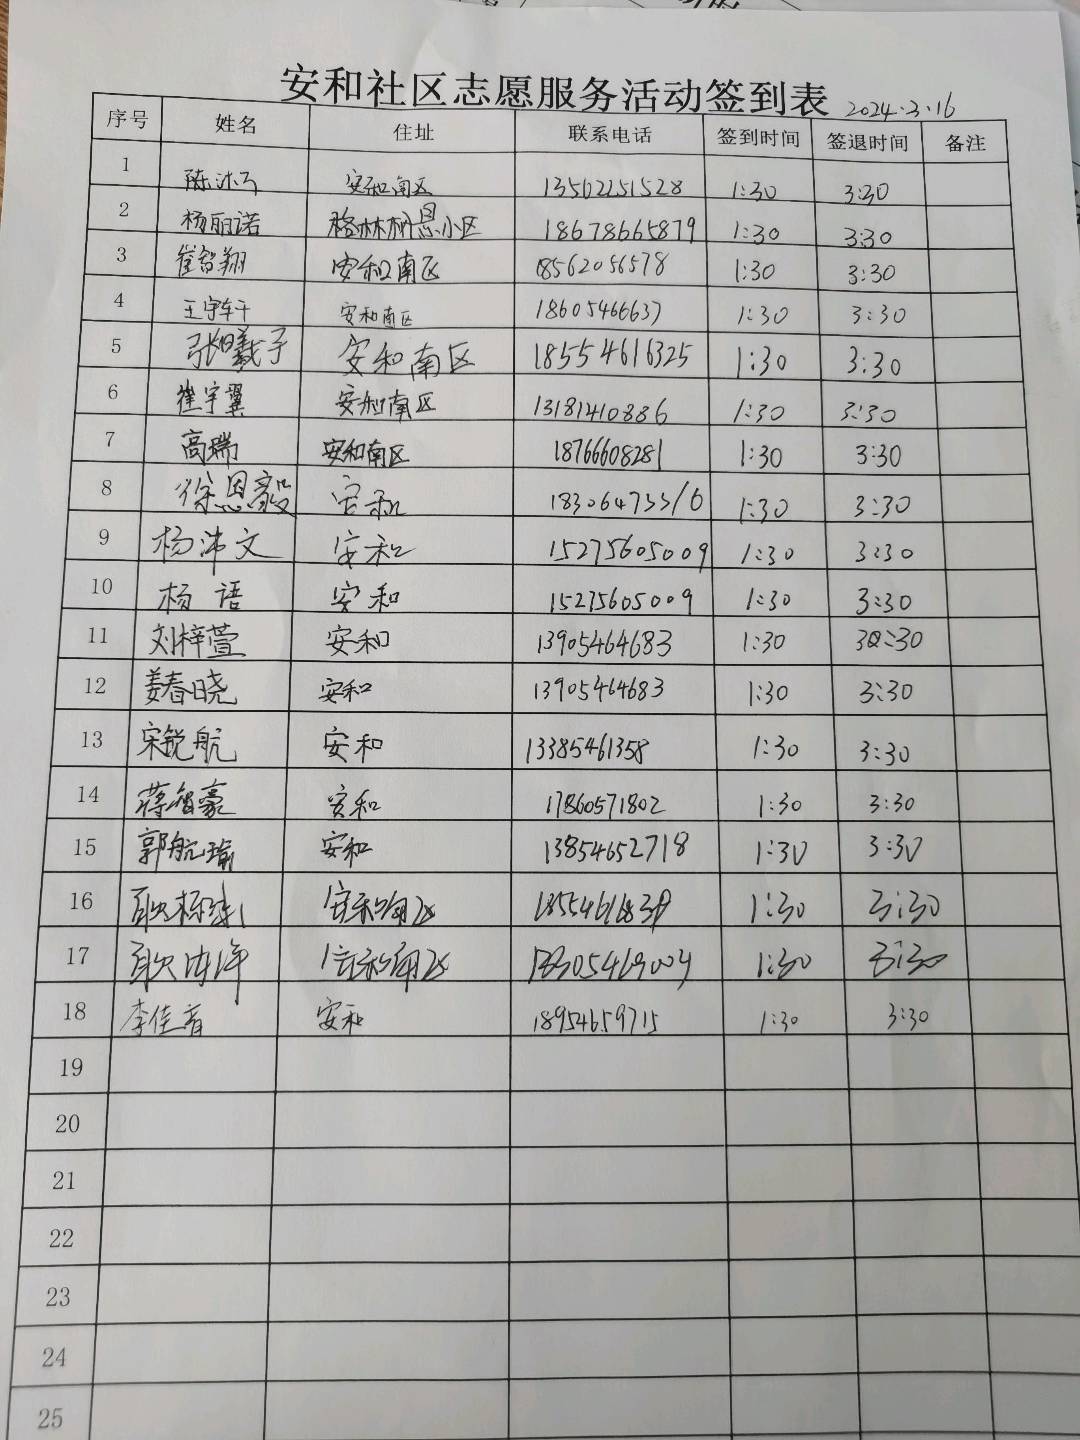 安和社区志愿服务活动签到表 2024.3.16
序号 姓名 住址 联系电话 签到时间 签退时间 备注
1 陈沐 安和南区 13562251528 1:30 3:30
2 杨丽诺 格林 小区 18678665879 1:30 3:30
3 崔智翔 安和南区 18562056578 1:30 3:30
4 王宇轩 安和南区 18605466637 1:30 3:30
5 张曦子 安和南区 18554616325 1:30 3:30
6 崔宇翼 安和南区 13181410886 1:30 3:30
7 高瑞 安和南区 18766608281 1:30 3:30
8 徐恩毅 安和 1:30 3:30
9 杨沛文 安和 15275605009 1:30 3:30
10 杨语 安和 15275605009 1:30 3:30
11 刘梓萱 安和 13905464683 1:30 3:30
12 姜春晓 安和 13905464683 1:30 3:30
13 宋锐航 安和 13385461358 1:30 3:30
14 蒋智豪 安和 17860571802 1:30 3:30
15 郭航瑜 安和 13854652718 1:30 3:30
16 安和南区 1:30 3:30
17 安和南区 1:30 3:30
18 李佳音 安和 18954659715 1:30 3:30
19
20
21
22
23
24
25